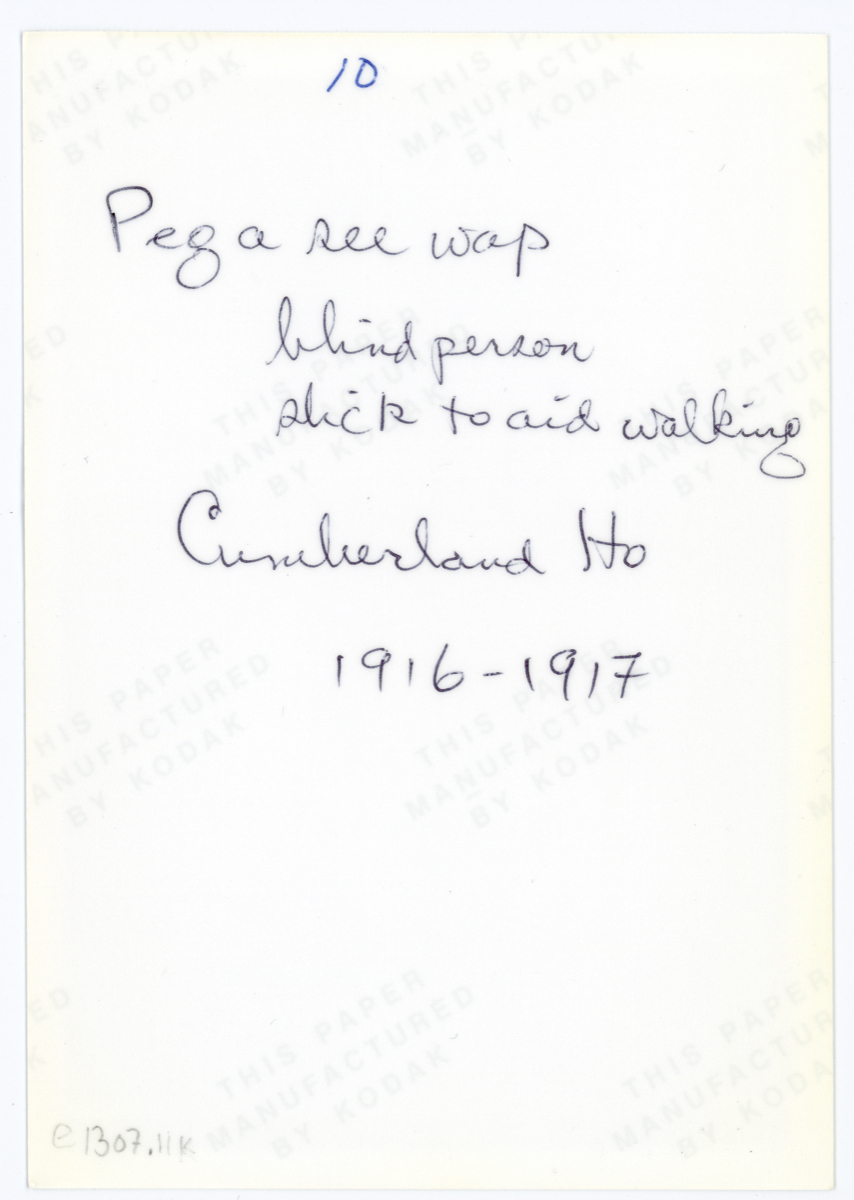 10
Peg a see wap
blind person
stick to aid walking
Cumberland Ho
1916-1917
THIS PAPER
MANUFACTURED
BY KODAK
e1307.11K